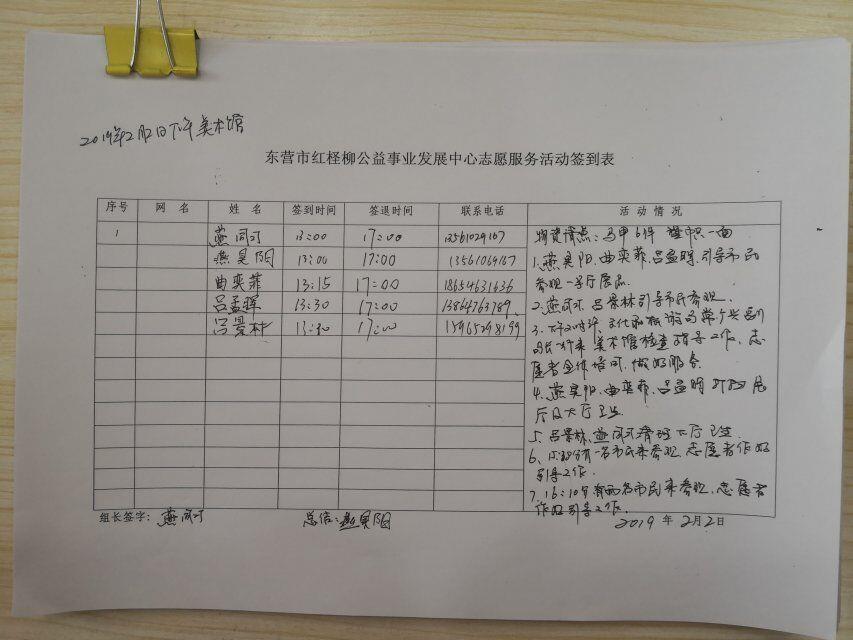 2019年2月2日下午美术馆
东营市红柽柳公益事业发展中心志愿服务活动签到表
序号 网 名 姓 名 签到时间 签退时间 联系电话 活 动 情 况
1 燕同可 13:00 17:00 13561029167
燕昊阳 13:00 17:00 13561069167
曲奕菲 13:15 17:00 18654631636
吕孟晖 13:30 17:00 13864763789
吕景林 13:30 17:00 15965298199
物资清点:马甲6件 旗帜一面
1.燕昊阳、曲奕菲、吕孟晖、引导市民
参观一号厅展品
2.燕同可、吕景林引导市民参观.
3.下午2时许
来美术馆检查指导工作、志
愿者全体陪同,做好服务
4.燕昊阳、曲奕菲、吕孟晖打扫展
厅及大厅卫生
5.吕景林、燕同可清理大厅卫生
6、15:30分有一名市民来参观、志愿者作好
引导工作.
7.16:10分有两名市民来参观、志愿者
作好引导工作.
组长签字:燕同可 总结:燕昊阳 2019年2月2日